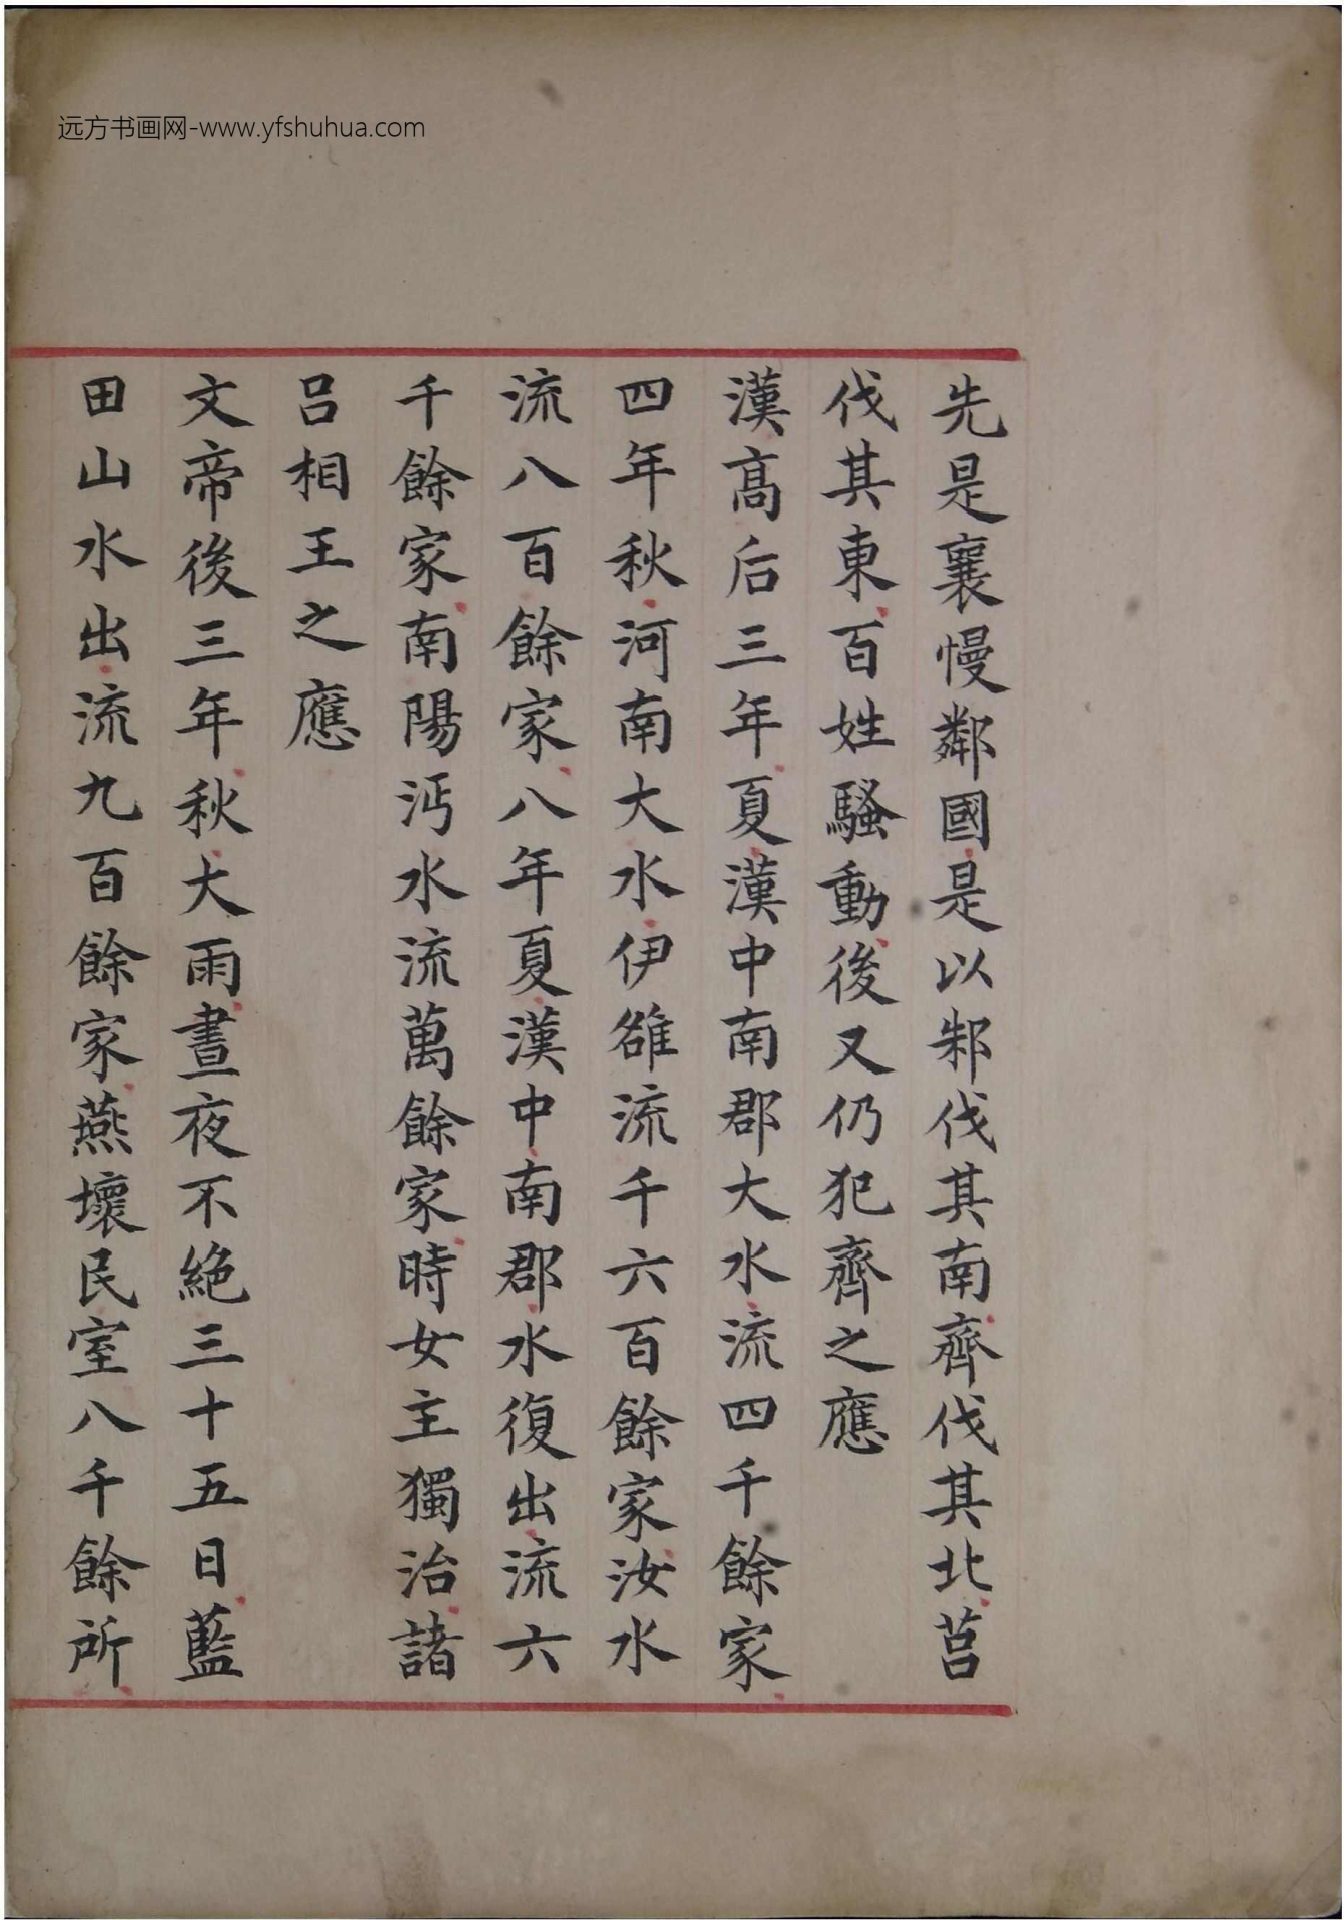 远方书画网-www.yfshuhua.com
先是襄慢鄰國是以邾伐其南齊伐其北莒
伐其東百姓騷動後又仍犯齊之應
漢髙后三年夏漢中南郡大水流四千餘家
四年秋河南大水伊雒流千六百餘家汝水
流八百餘家八年夏漢中南郡水復出流六
千餘家南陽沔水流萬餘家時女主獨治諸
吕相王之應
文帝後三年秋大雨晝夜不絶三十五日藍
田山水出流九百餘家燕壞民室八千餘所